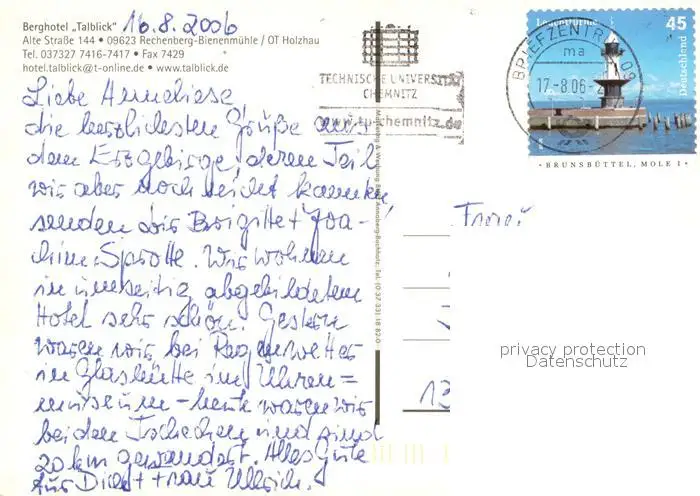 Berghotel „Talblick" 16.8.2006
Alte Straße 144 • 09623 Rechenberg-Bienenmühle / OT Holzhau
Tel. 037327 7416-7417 • Fax 7429
hotel.talblick@t-online.de • www.talblick.de
Liebe Anneliese,
die herzlichsten Grüße aus
dem Erzgebirge, deren Teil
wir aber noch nicht kannten
senden dir Brigitte + Joa-
chim Sprotte. Wir wohnen
im umseitig abgebildetem
Hotel sehr schön. Gestern
waren wir bei Regenwetter
in Glashütte im Uhren=
museum - heute waren wir
bei den Tschechen und sind
20 km gewandert. Alles Gute
für Dich + Frau Ullrich.
TECHNISCHE UNIVERSITÄT
CHEMNITZ
www.tu-chemnitz.de
BRIEFZENTRUM 09
ma
17.-8.06-2
Leuchttürme
45
Deutschland
• BRUNSBÜTTEL, MOLE 1 •
Frau
12
privacy protection
Datenschutz